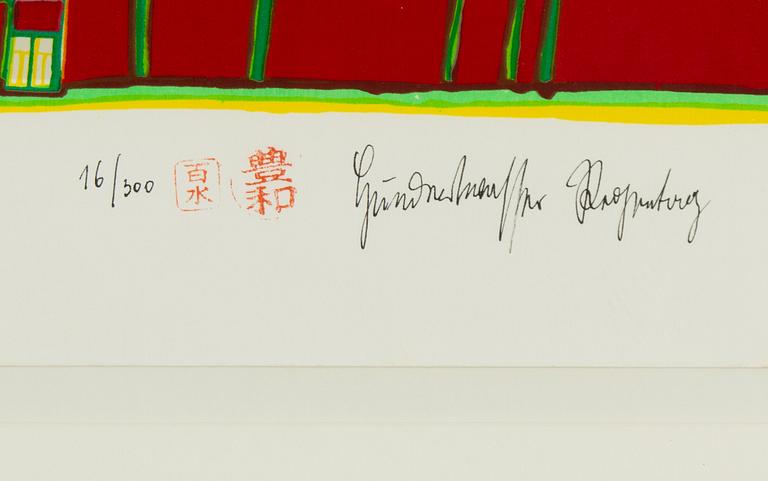 16/300 百水 豊和 Hundertwasser Regentag